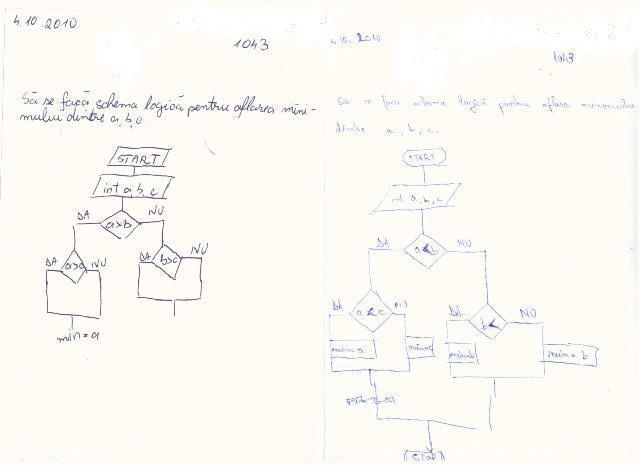 4.10.2010
1043
Să se facă schema logică pentru aflarea mini-
mului dintre a, b, c.
START
int a, b, c
DA a>b NU
DA a>c NU
DA b>c NU
min = a
4.10.2010
1043
Să se facă schema logică pentru aflarea minimului
dintre a, b, c.
START
int a, b, c
DA a<b NU
DA a<c NU
DA b< NU
min=a
min=c
min=b
min= b
STOP